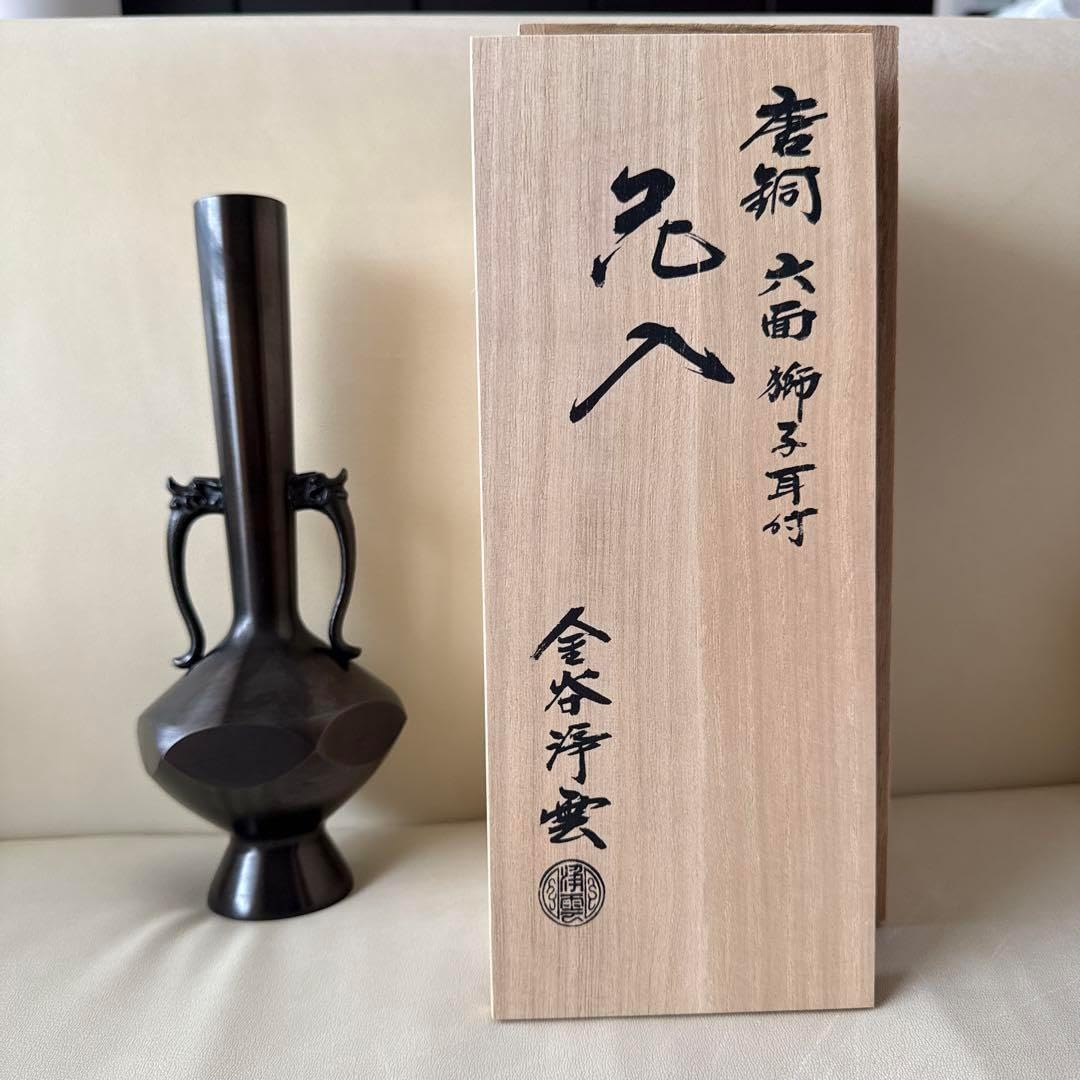 唐銅 六面獅子耳付
花入
金谷浄雲
浄雲